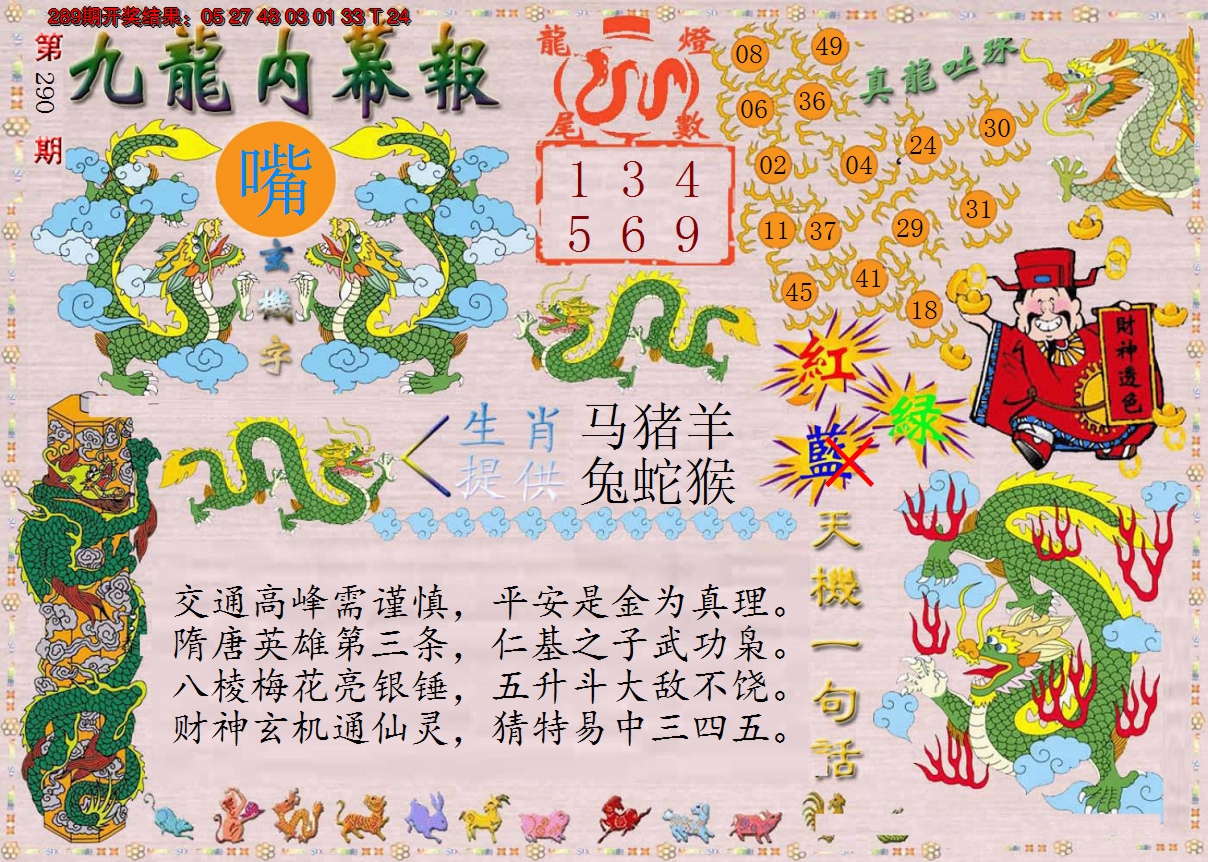 289期开奖结果：05 27 48 03 01 33 T 24
第290期
九龍内幕報
嘴
玄機字
龍燈尾數
1 3 4
5 6 9
真龍吐珠
08 49
06 36
24 30
02 04
31
11 37 29
41
45 18
財神透色
紅
綠
藍
生肖 马猪羊
提供 兔蛇猴
天機一句话
交通高峰需谨慎，平安是金为真理。
隋唐英雄第三条，仁基之子武功枭。
八棱梅花亮银锤，五升斗大敌不饶。
财神玄机通仙灵，猜特易中三四五。